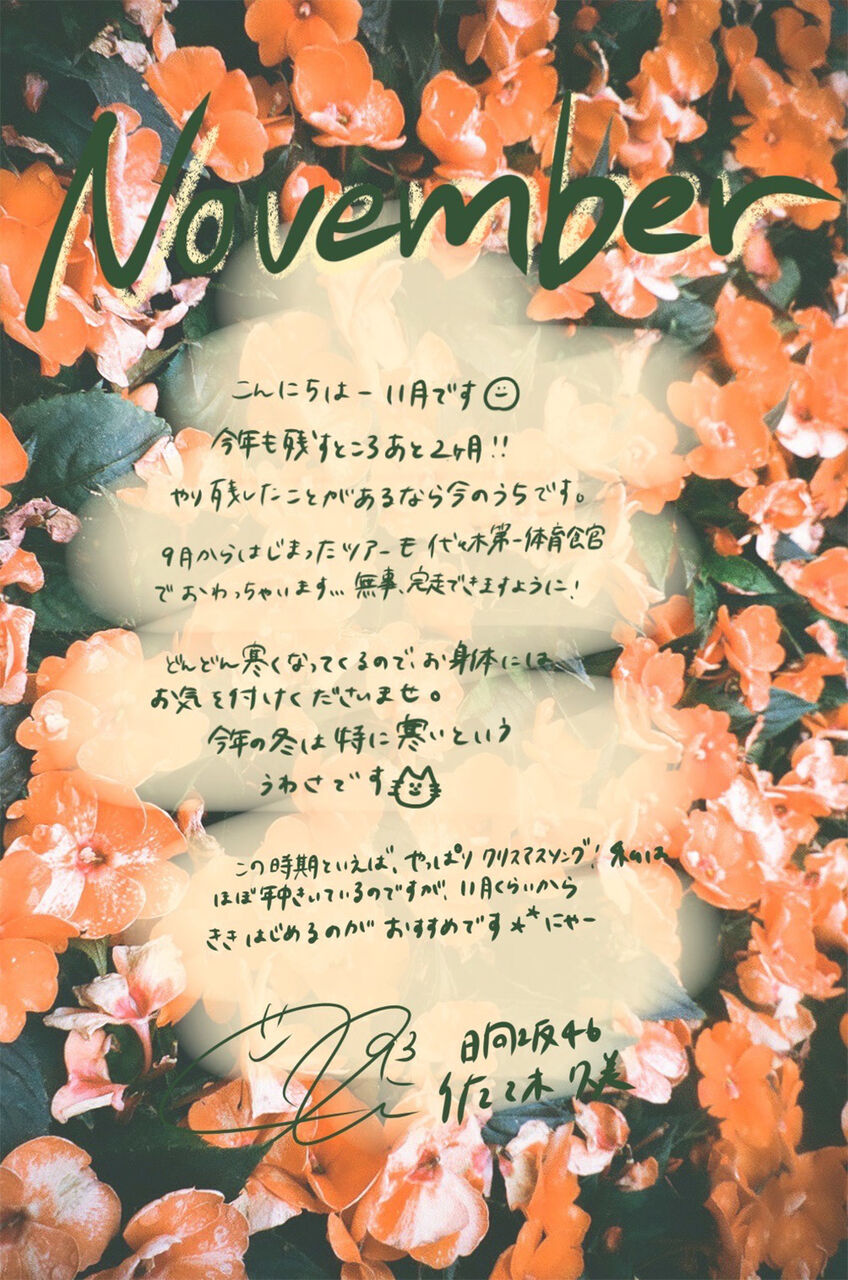 November
こんにちはー11月です
今年も残すところあと2ヶ月!!
やり残したことがあるなら今のうちです。
9月からはじまったツアーも代々木第一体育館
でおわっちゃいます... 無事、完走できますように!
どんどん寒くなってくるので、お身体には
お気を付けくださいませ。
今年の冬は特に寒いという
うわさです
この時期といえば、やっぱりクリスマスソング! 私は
ほぼ年中きいているのですが、11月くらいから
ききはじめるのがおすすめです**にゃー
日向坂46
佐々木久美